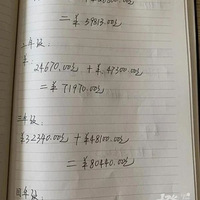 = ¥ 59813.00元
二年级
¥ 24670.00元 + ¥ 47300.00元
= ¥ 71970.00元
三年级
¥ 32340.00元 + ¥ 48100.00元
= ¥ 80440.00元
四年级